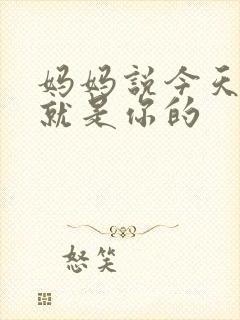 妈妈说今天
就是你的
怒笑